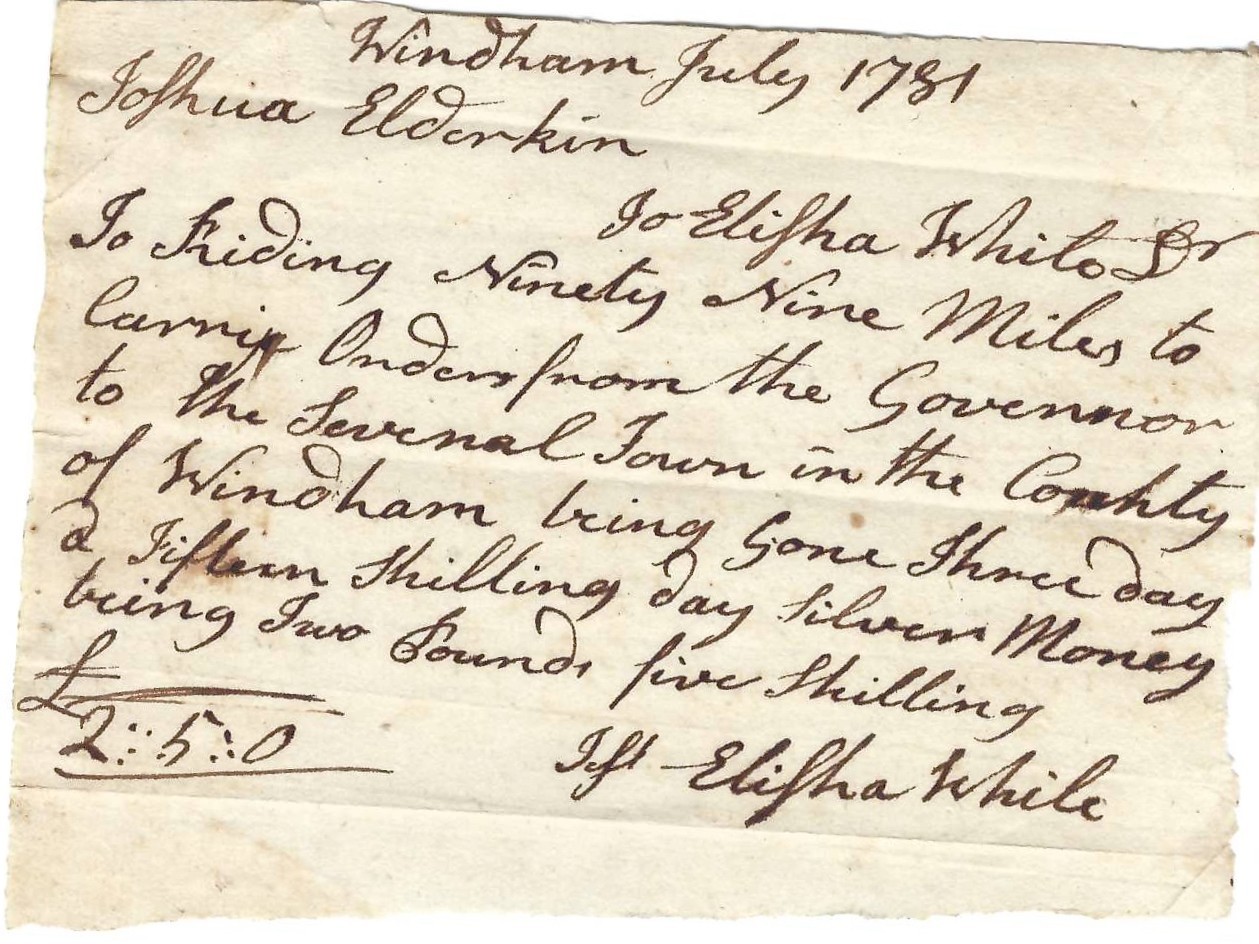 Windham July 1781
Joshua Elderkin
To Elisha White Dr
To Riding Ninety Nine Miles to
Carrig Orders from the Govennor
to the Several Town in the County
of Windham being Gone Three day
a Fifteen Shilling day Silver Money
being Two Pounds five Shilling
£
2::5::0
Test Elisha White